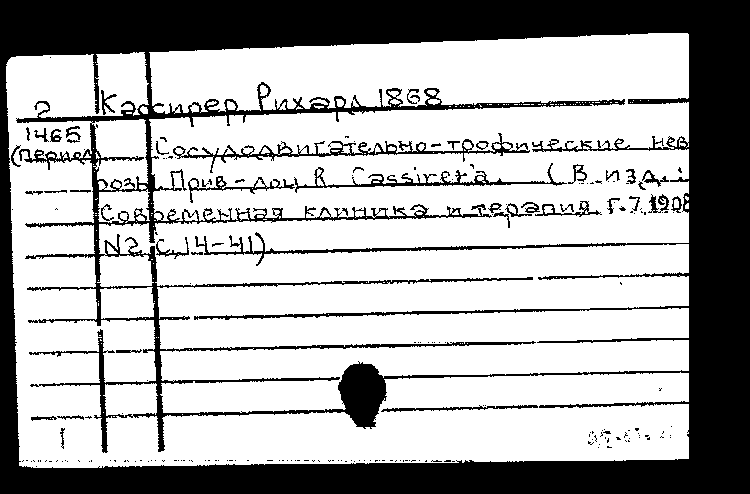 2 Кассирер, Рихард 1868
1465
(период) Сосудодвигательно-трофические нев
розы. Прив-доц. R. Cassirer'а. (В изд.:
Современная клиника и терапия. Г.7, 1908
N2, с. 14-41).
1